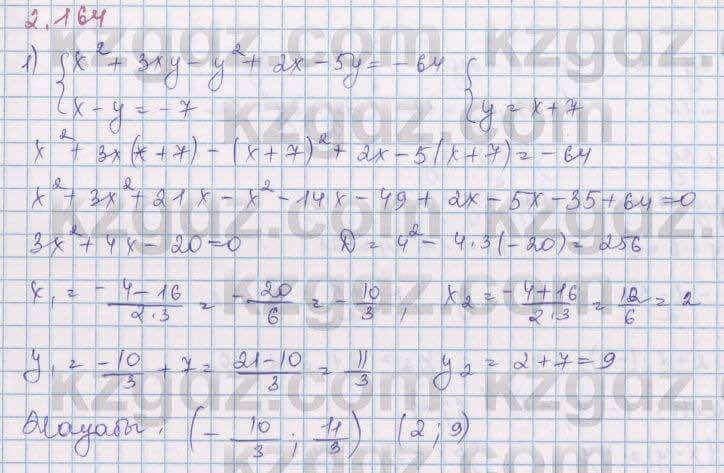 2.164
1) { x² + 3xy - y² + 2x - 5y = - 64 {
x - y = - 7 y = x + 7
x² + 3x(x + 7) - (x + 7)² + 2x - 5(x + 7) = - 64
x² + 3x² + 21x - x² - 14x - 49 + 2x - 5x - 35 + 64 = 0
3x² + 4x - 20 = 0 D = 4² - 4·3(-20) = 256
x₁ = (-4-16)/(2·3) = -20/6 = -10/3 ; x₂ = (-4+16)/(2·3) = 12/6 = 2
y₁ = -10/3 + 7 = (21-10)/3 = 11/3 y₂ = 2 + 7 = 9
Жауабы: (-10/3 ; 11/3) (2 ; 9)
kzgdz.com